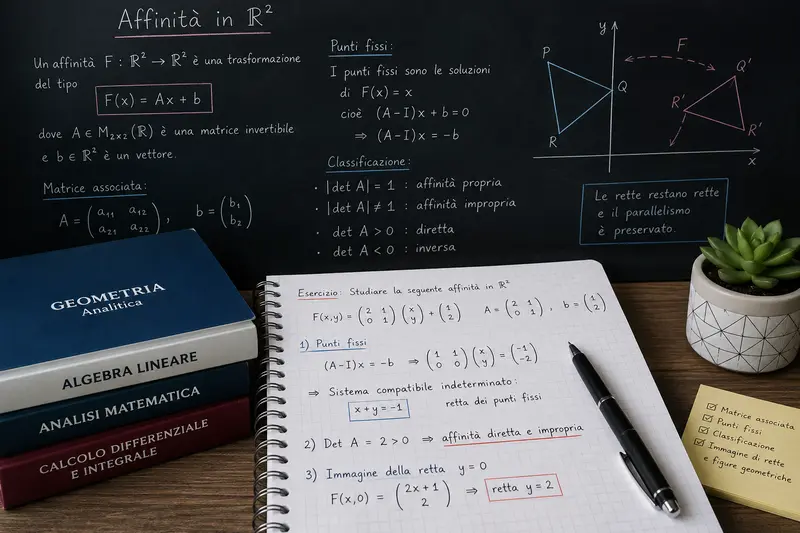 Affinità in ℝ²
Un affinità F : ℝ² → ℝ² è una trasformazione
del tipo
F(x) = Ax + b
dove A ∈ M₂ₓ₂(ℝ) è una matrice invertibile
e b ∈ ℝ² è un vettore.
Matrice associata:
A = (a₁₁ a₁₂
a₂₁ a₂₂), b = (b₁
b₂)
Punti fissi:
I punti fissi sono le soluzioni
di F(x) = x
cioè (A-I)x + b = 0
⇒ (A-I)x = -b
Classificazione:
· |det A| = 1 : affinità propria
· |det A| ≠ 1 : affinità impropria
· det A > 0 : diretta
· det A < 0 : inversa
y
P
F
Q'
Q
R'
R
R'
x
Le rette restano rette
e il parallelismo
è preservato.
GEOMETRIA
Analitica
ALGEBRA LINEARE
ANALISI MATEMATICA
CALCOLO DIFFERENZIALE
E INTEGRALE
Esercizio: Studiare la seguente affinità in ℝ²
F(x,y) = (2 1
0 1) (x
y) + (1
2) A = (2 1
0 1), b = (1
2)
1) Punti fissi
(A-I)x = -b ⇒ (1 1
0 0) (x
y) = (-1
-2)
⇒ Sistema compatibile indeterminato:
x + y = -1 retta dei punti fissi
2) Det A = 2 > 0 ⇒ affinità diretta e impropria
3) Immagine della retta y = 0
F(x,0) = (2x + 1
2) ⇒ retta y = 2
☑ Matrice associata
☑ Punti fissi
☑ Classificazione
☑ Immagine di rette
e figure geometriche